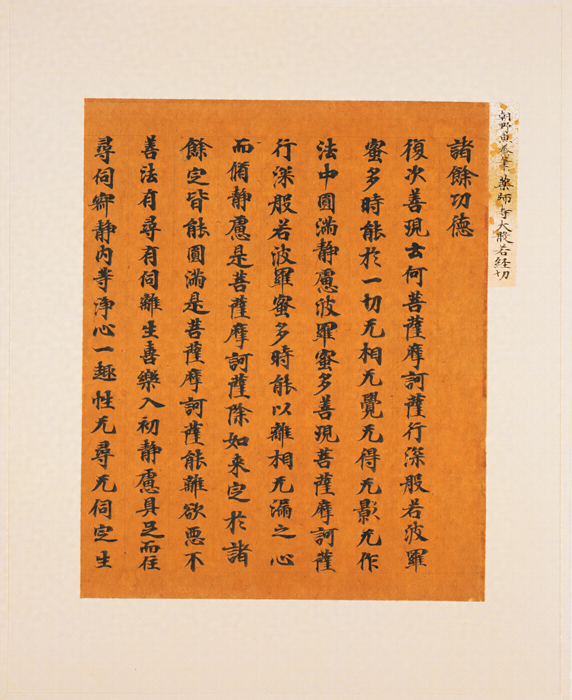 朝野魚養筆 薬師寺大般若経切
諸餘功德
復次善現云何菩薩摩訶薩行深般若波羅
蜜多時能於一切无相无覺无得无影无作
法中圓滿靜慮波羅蜜多善現菩薩摩訶薩
行深般若波羅蜜多時能以離相无漏之心
而脩靜慮是菩薩摩訶薩除如来定於諸
餘定皆能圓滿是菩薩摩訶薩能離欲惡不
善法有尋有伺離生喜樂入初靜慮具足而住
尋伺寂靜內等淨心一趣性无尋无伺定生